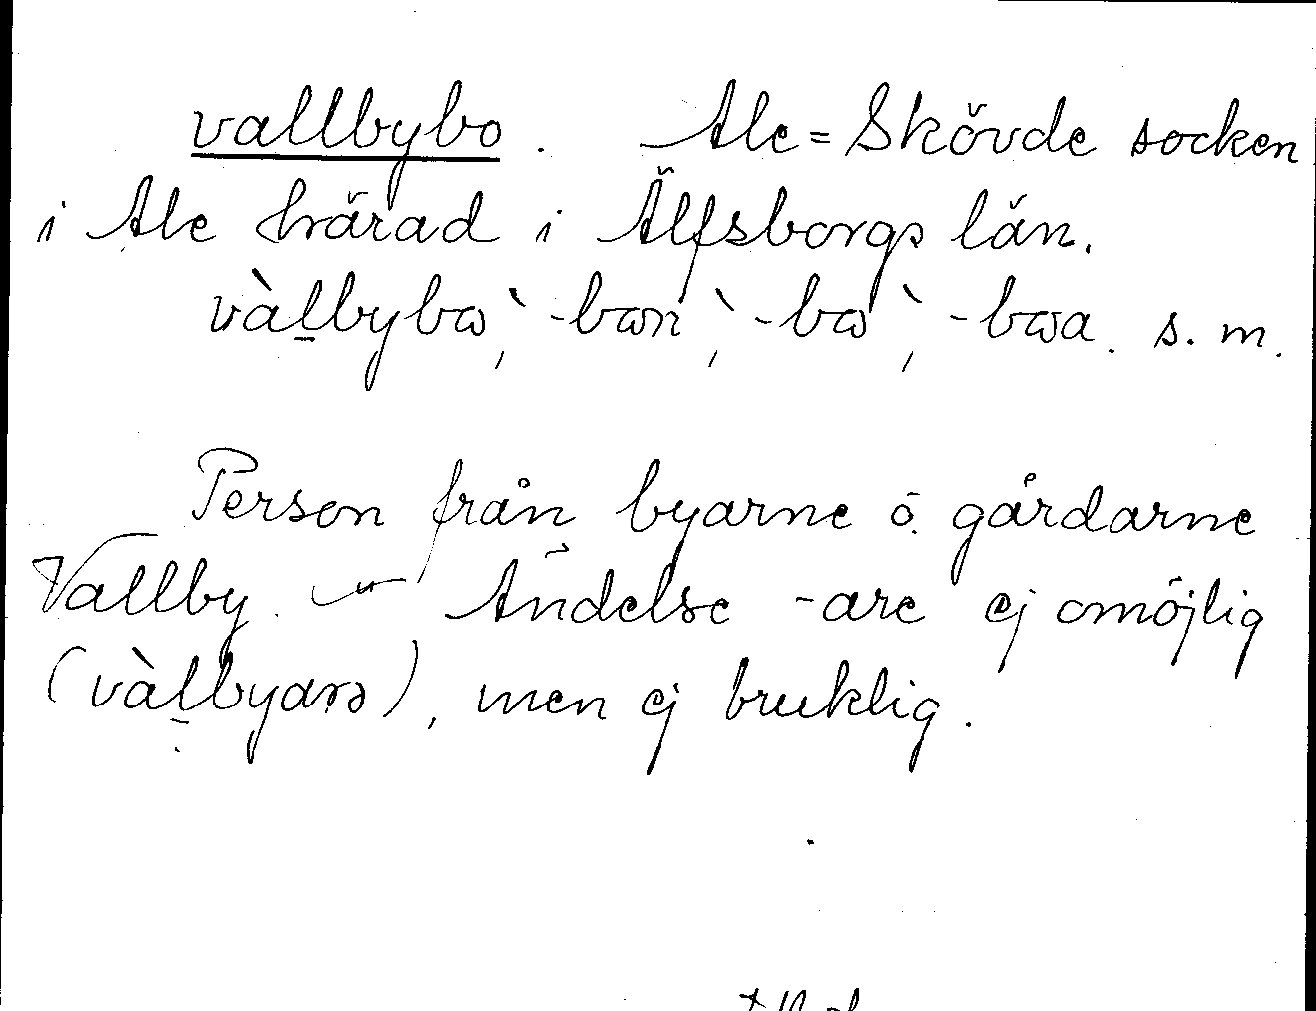 vallbybo. Ale=Skövde socken
i Ale härad i Älfsborgs län.
vàl̠bybɷ`, -bɷn`, -bɷ`, -bɷa. s. m.
Person från byarne o. gårdarne
Vallby. — Ändelse -are ej omöjlig
(vàl̠byarə), men ej bruklig.